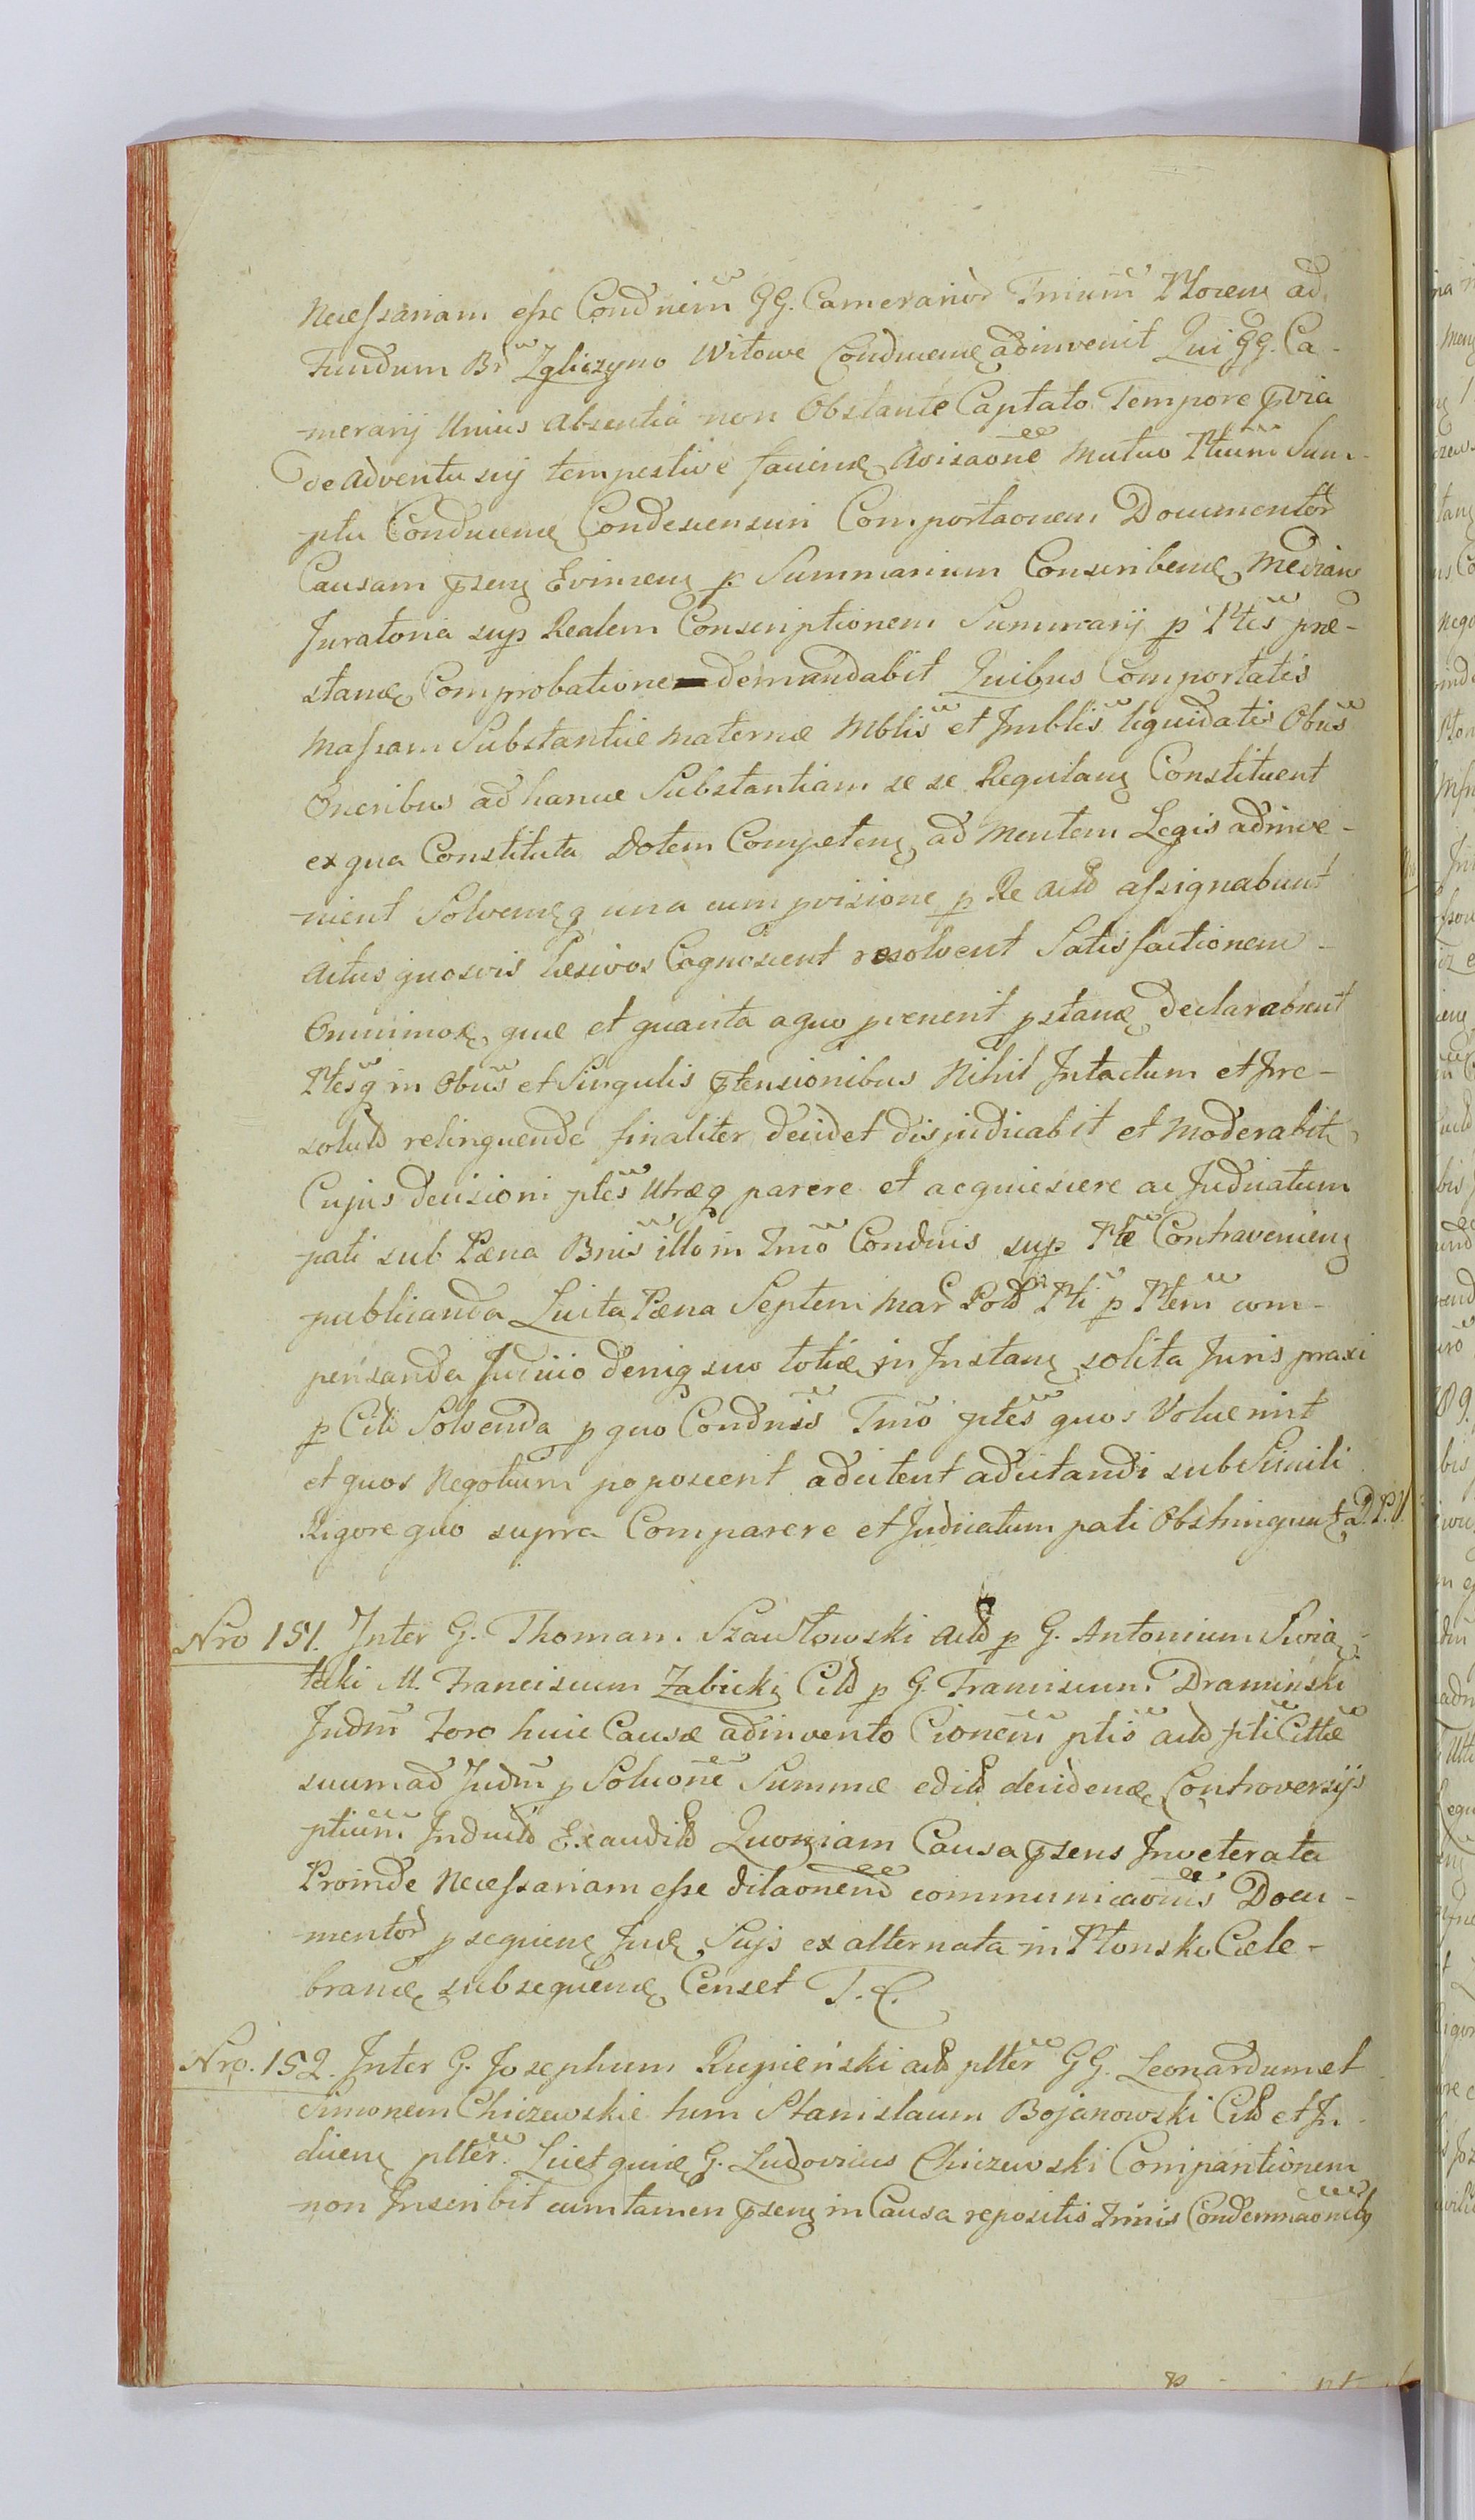 Necessariam esse Condnem GG. Camerarior Trium Ptoren ad
Fundum Br Zgliczyno Witowe Conducenę adinvenit Qui GG. Ca-
merarij Unius absentia non Obstante Captato Tempore pvia
de adventu sij tempestive facienę avisaone Mutuo Ptium Sum-
ptu Conducenę Condescensuri Comportaonem Documentor
Causam psenę Evincenę p Summarium Conscribenę Median
Juratoria sup Realem Conscriptionem Summarij p Ptes præ-
stanæ Comprobatione demandabit Quibus Comportatis
Massam Substantiæ maternæ Mblis et Imblis liquidatis Obus
Oneribus ad hancce Substantiam se se Regulanę Constituent
ex qua Constituta Dotem Competenę ad mentem Legis adinve-
nient Solvenęq una cum pvisione p Re acto assignabunt
Actus quosvis læsivos Cognoscent resolvent Satisfactionem
Omnimodę quæ et quanta a quo pvenerit pstanę declarabunt
Ptesq in Obus et Singulis ptensionibus Nihil Intactum et Irre-
solutd relinquendo finaliter decidet disjudicabit et moderabit
Cujus decisioni ptes Utræq parere et acquiescere ac Judicatum
pati sub Pæna Bnis illo in Tmo Condnis sup Pte Contravenienę
publicanda Luita Pæna Septem Mar Pold Pti p Ptem com-
pensanda Judicio deniq suo toties in Instanę solita Juris praxi
p Citd Solvenda p quo Condnis Tmo ptes quos Voluerint
et quos Negotium poposcerit adcitent adcitandi sub Simili
Rigore quo supra Comparere et Judicatum pati Obstringunt D.P.V.
Nro 151. Inter G. Thoman. Szaustowski actd p G. Antonium Swią-
tecki M. Franciscum Zabicki Citd p G. Franciscum Draminski
Judm Foro huic Causæ adinvento Cionem ptis actd pti Cittæ
suum ad Judm p Soluone Summæ edittd decidenæ Controversijs
ptium Inductd Exauditd Quoniam Causa psens Inveterata
Proinde Necessariam esse dilaonem communicaonis Docu-
mentor p sequenę Judę Sujs ex alternata in Płonsko Cæle-
branę subsequenę Censet T. C.
Nro. 152. Inter G. Josephum Rupieński actd plter GG. Leonardum et
Simonem Chiczewskie tum Stanislaum Bojanowski Citd et In-
ducenę plter. Licet quiæ G. Ludovicus Chiczewski Comparitionem
non Inscribit cum tamen psenę in Causa repositis Trinis Condemnaonibq